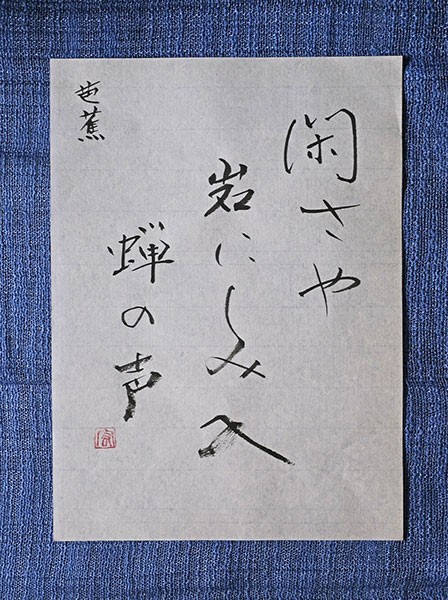 閑さや
岩にしみ入
蝉の声
芭蕉